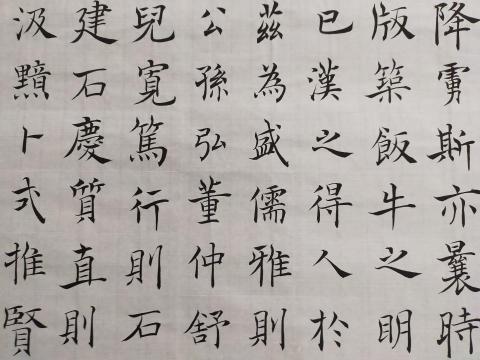 降虜斯亦曩時
版築飯牛之明
已漢之得人於
茲為盛儒雅則
公孫弘董仲舒
兒寬篤行則石
建石慶質直則
汲黯卜式推賢